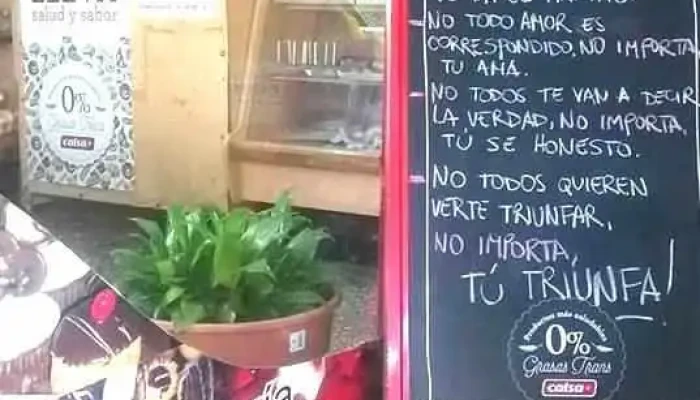 salud y sabor
0%
Grasas Trans
calsa
NO TODO AMOR ES
CORRESPONDIDO, NO IMPORTA
TU AMA.
NO TODOS TE VAN A DECIR
LA VERDAD, NO IMPORTA,
TÚ SE HONESTO.
NO TODOS QUIEREN
VERTE TRIUNFAR,
NO IMPORTA,
TÚ TRIUNFA!
Productos más saludables
0%
Grasas Trans
calsa